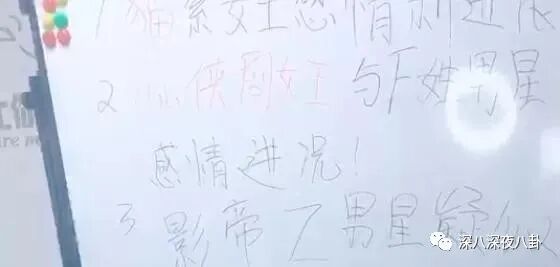 1 猫系女王感情新进展
2 仙侠圈女王与F姓男星
感情进况！
3 影帝Z男星疑似
深八深夜八卦